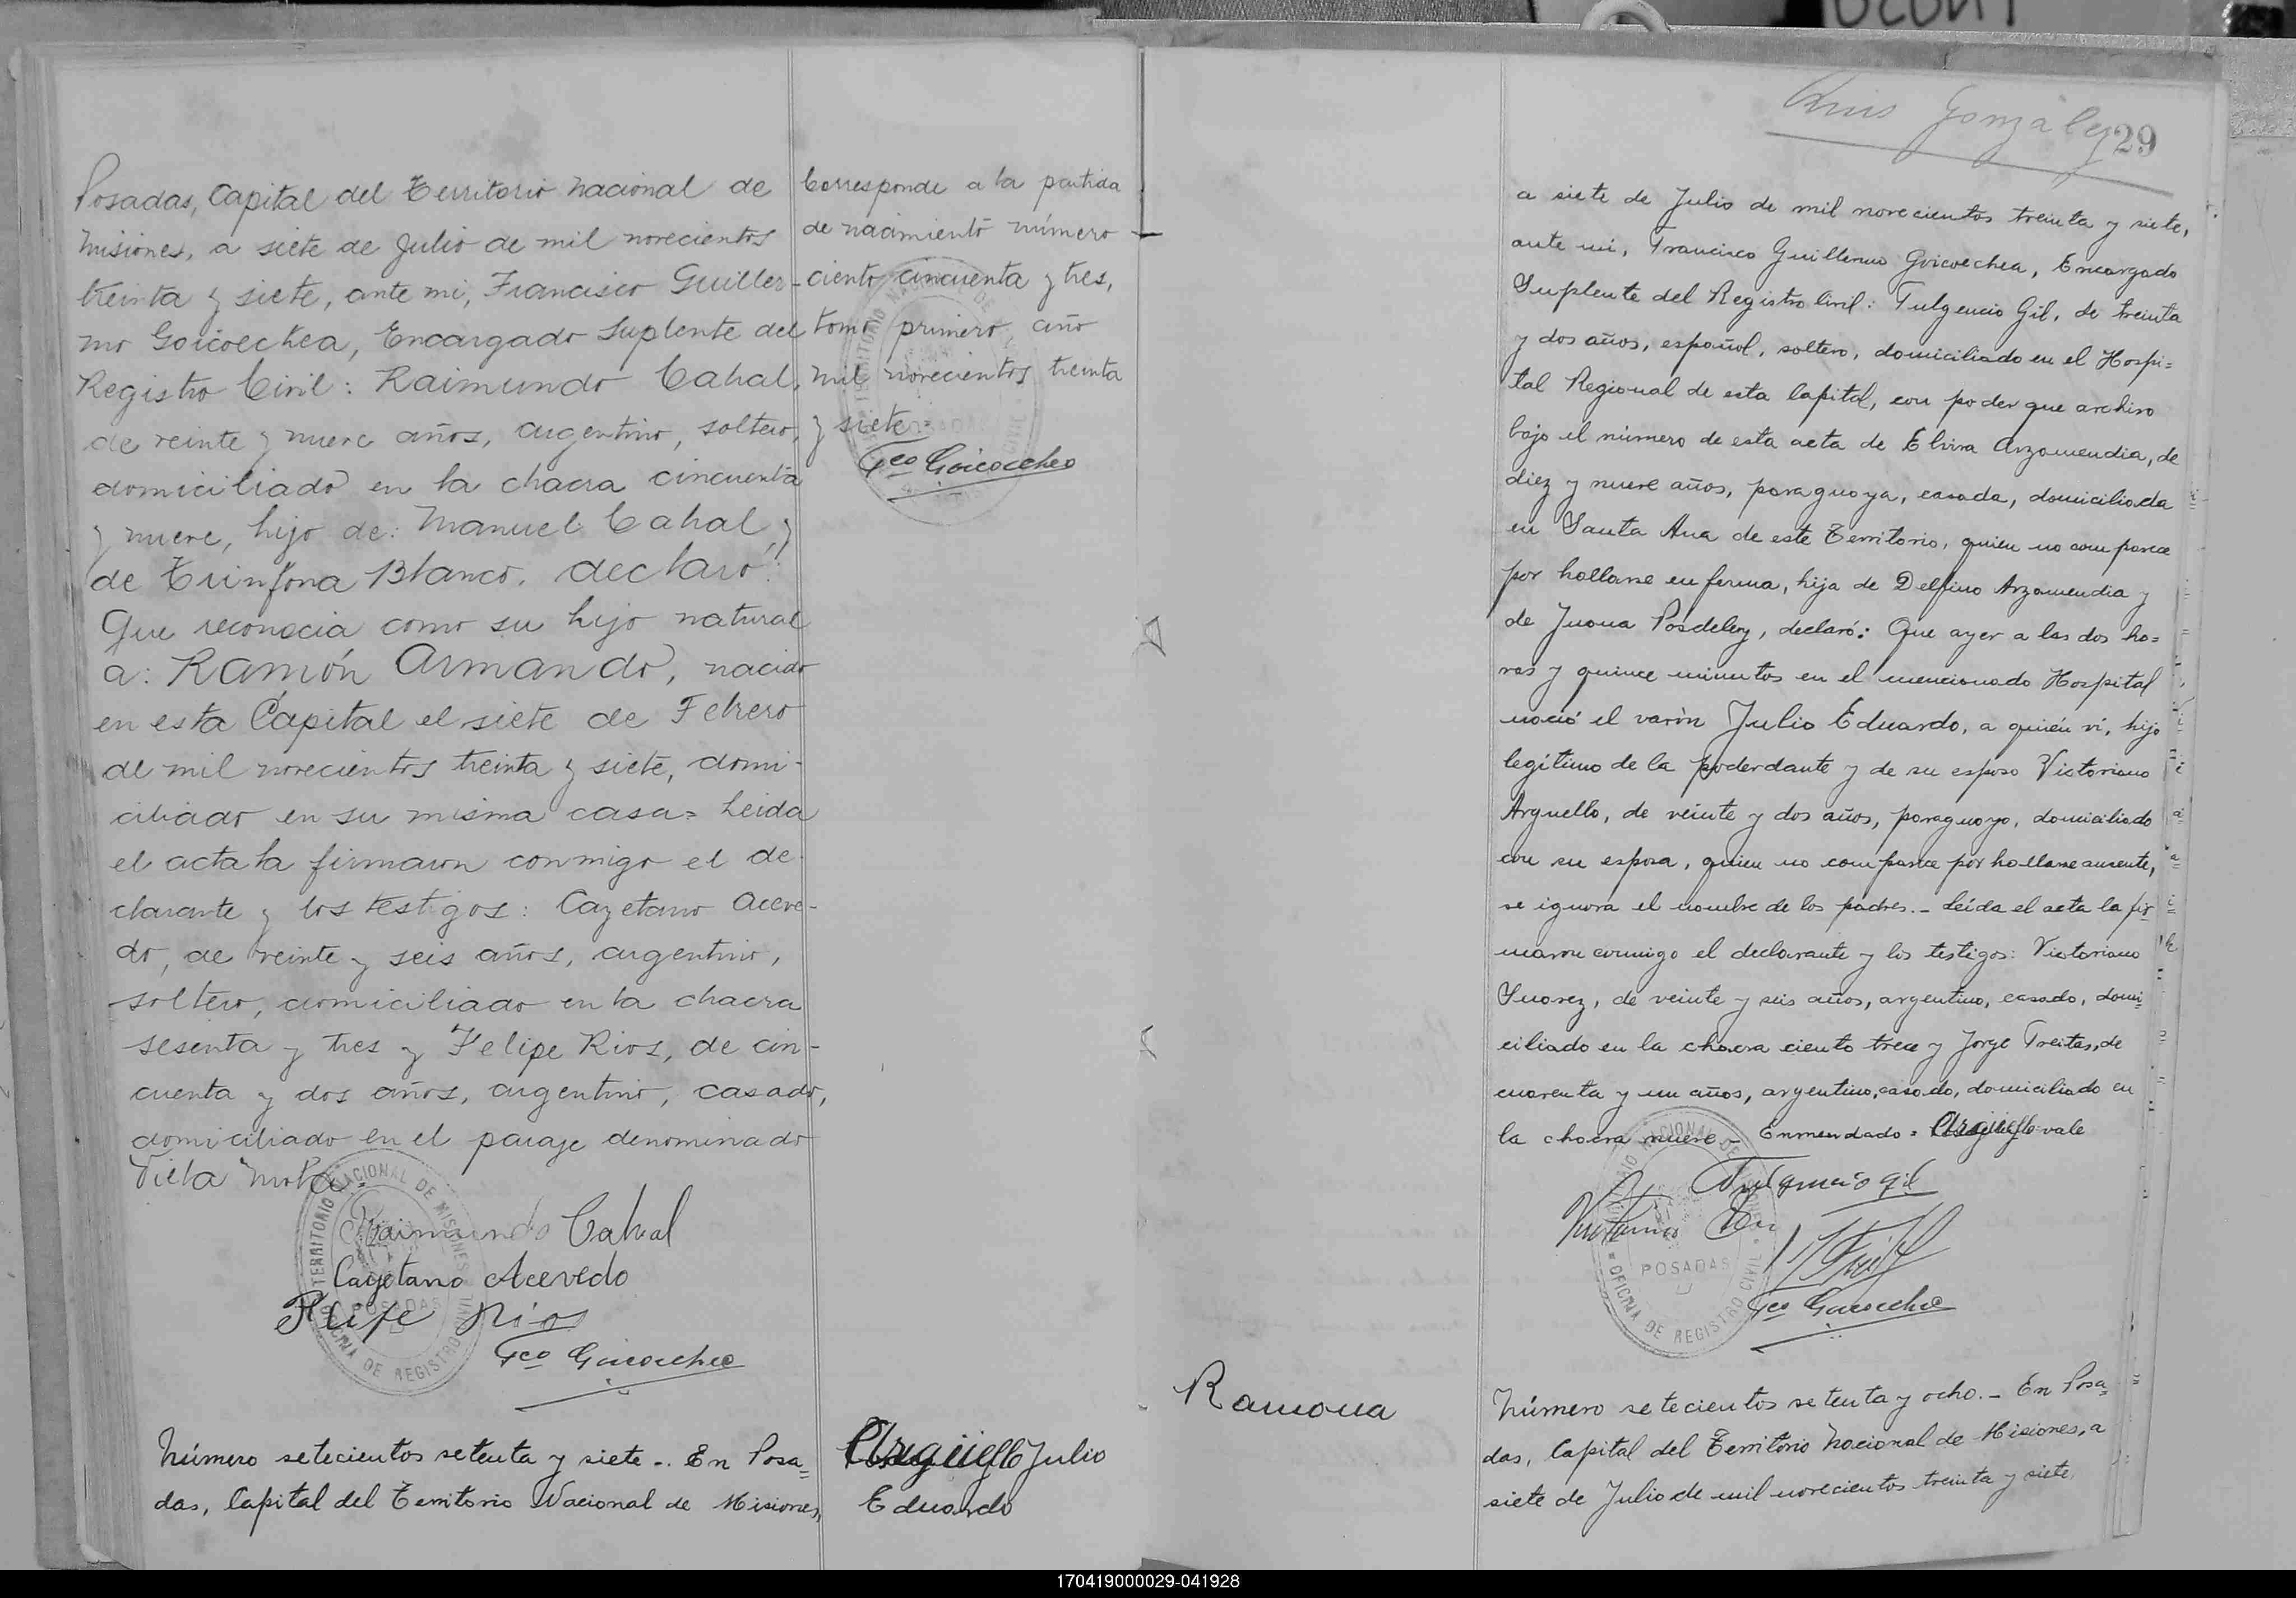 Posadas, Capital del Territorio Nacional de
Misiones, a siete de Julio de mil novecientos
treinta y siete, ante mi, Francisco Guiller-
mo Goicoechea, Encargado Suplente del
Registro Civil: Raimundo Cabral,
de veinte y nueve años, argentino, soltero,
domiciliado en la chacra cincuenta
y nueve, hijo de: Manuel Cabral, y
de Trinfona Blanco, declaró:
Que reconocia como su hijo natural
a: Ramón Armando, nacido
en esta Capital el siete de Febrero
de mil novecientos treinta y siete, domi-
ciliado en su misma casa= Leida
el acta la firmaron conmigo el de-
clarante y los testigos: Cayetano Aceve-
do, de veinte y seis años, argentino,
soltero, domiciliado en la chacra
sesenta y tres y Felipe Rios, de cin-
cuenta y dos años, argentino, casado,
domiciliado en el paraje denominado
Villa
Raimundo Cabral
Cayetano Acevedo
Felipe Rios
Fco Goicoechea
TERRITORIO NACIONAL DE MISIONES
POSADAS
OFICINA DE REGISTRO CIVIL
Número setecientos setenta y siete.- En Posa=
das, Capital del Territorio Nacional de Misiones,
Corresponde a la partida
de nacimiento número
ciento cincuenta y tres,
tomo primero, año
mil novecientos treinta
y siete=
Fco Goicoechea
Argüello Julio
Eduardo
Luis González
29
a siete de Julio de mil novecientos treinta y siete,
ante mi, Francisco Guillermo Goicoechea, Encargado
Suplente del Registro Civil: Fulgencio Gil, de treinta
y dos años, español, soltero, domiciliado en el Hospi=
tal Regional de esta Capital, con poder que archivo
bajo el número de esta acta de Elvira Arzamendia, de
diez y nueve años, paraguaya, casada, domiciliada
en Santa Ana de este Territorio, quien no comparece
por hallarse enferma, hija de Delfino Arzamendia y
de Juana Posdeley, declaró: Que ayer a las dos ho=
ras y quince minutos en el mencionado Hospital
nació el varón Julio Eduardo, a quién ví, hijo
legítimo de la poderdante y de su esposo Victoriano
Arguello, de veinte y dos años, paraguayo, domiciliado
con su esposa, quien no comparece por hallarse ausente,
se ignora el nombre de los padres.- Leída el acta la fir=
maron conmigo el declarante y los testigos: Victoriano
Suarez, de veinte y seis años, argentino, casado, domi=
ciliado en la chacra ciento trece y Jorge Freitas, de
cuarenta y un años, argentino, casado, domiciliado en
la chacra nueve.- Enmendado= Argüello vale
Fulgencio gil
Fco Goicoechea
TERRITORIO NACIONAL DE MISIONES
POSADAS
OFICINA DE REGISTRO CIVIL
Ramona
Número setecientos setenta y ocho.- En Posa=
das, Capital del Territorio Nacional de Misiones, a
siete de Julio de mil novecientos treinta y siete,
170419000029-041928